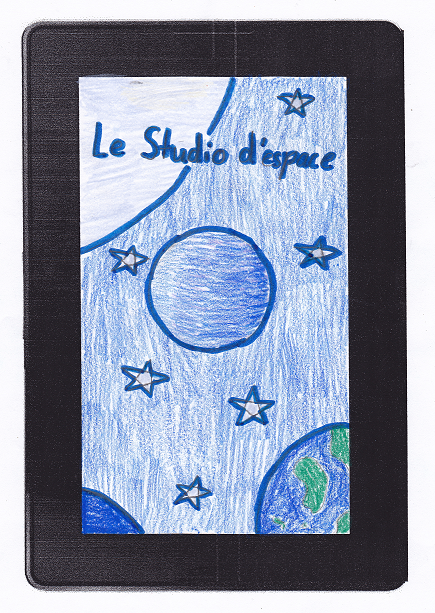 Le Studio d'espace